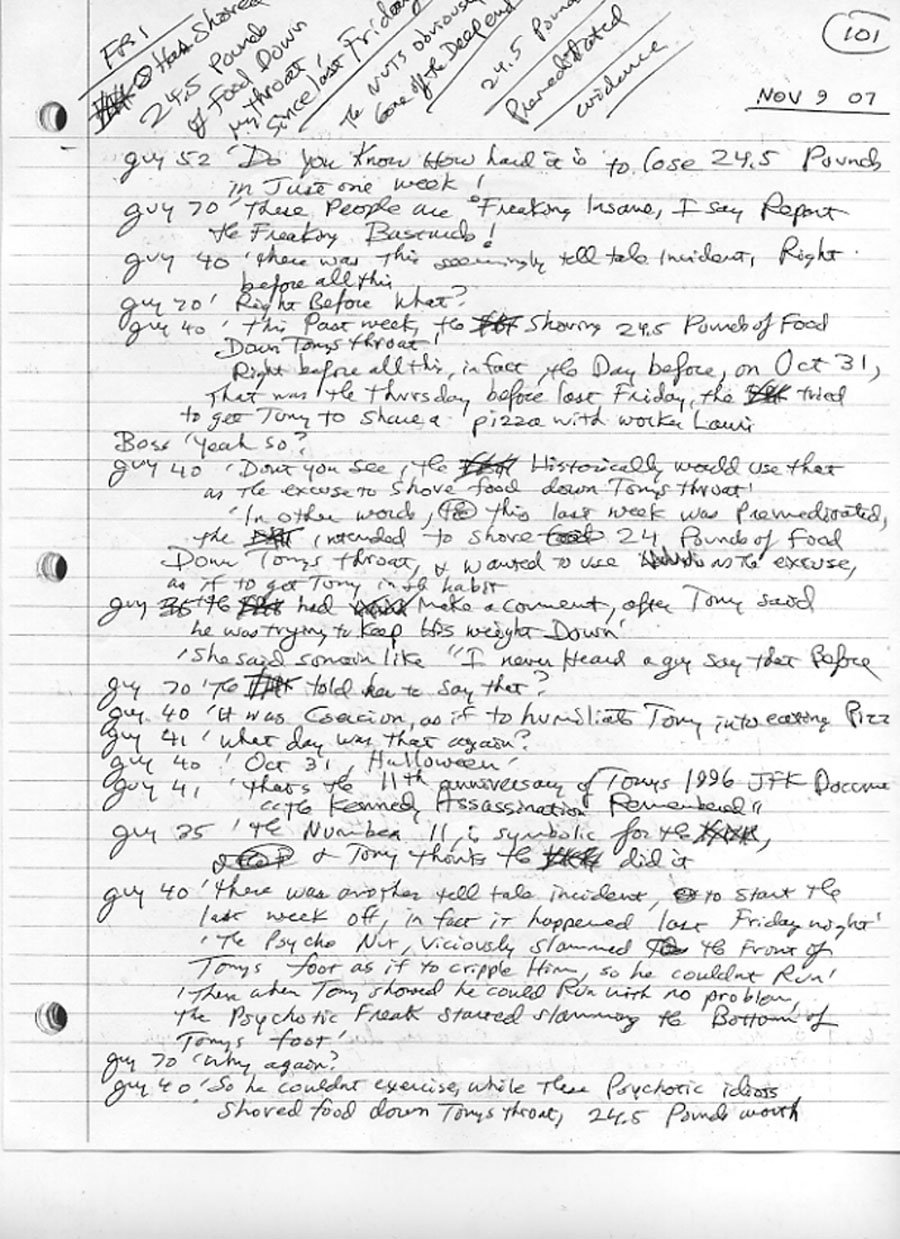 FBI
Has Shoved
24.5 Pounds
of Food Down
my throat,
since last Friday
The NUTS obviously
Gone off the Deep end
24.5 Pounds
Premeditated
evidence
101
NOV 9 07
guy 52 'Do you Know How hard it is to lose 24.5 Pounds
in Just one week!
guy 70 'These People are Freaking Insane, I say Report
the Freaking Bastards!
guy 40 'there was this seemingly tell tale Incident, Right
before all this
guy 70' Right Before What?
guy 40 'this Past week, the Shoving 24.5 Pounds of Food
Down Tonys throat'
Right before all this, in fact, the Day before, on Oct 31,
That was the thursday before last Friday, the tried
to get Tony to Share a pizza with worker Lauri
Boss 'Yeah so?
guy 40 'Dont you see, the Historically would use that
as the excuse to shove food down Tonys throat'
'In other words, this last week was Premeditated,
the intended to shove 24 Pounds of Food
Down Tonys throat, & wanted to use as the excuse,
as if to get Tony in the habit
guy 35 'the had make a comment, after Tony said
he was trying to Keep His weight Down'
'She said somein like "I never Heard a guy say that Before
guy 70 'the told her to say that?
guy 40 'it was Coercion, as if to humiliate Tony into eating Pizz
guy 41 'what day was that again?
guy 40 ' Oct 31, Halloween'
guy 41 'thats the 11th anniversary of Tonys 1996 JFK Docume
"the Kennedy Assassination Remembered"
guy 35 'the Number 11, is symbolic for the ,
& Tony thinks the did it
guy 40 'there was another tell tale incident, to start the
last week off, in fact it happened last Friday night'
'The Psycho Nut, viciously slammed the Front of
Tonys foot as if to cripple Him, so he couldnt Run'
'Then when Tony showed he could Run with no problem,
the Psychotic Freak started slamming the Bottom of
Tonys foot'
guy 70 'Why again?
guy 40 'So he couldnt exercise, while these Psychotic idiots
Shoved food down Tonys throat, 24.5 Pounds worth